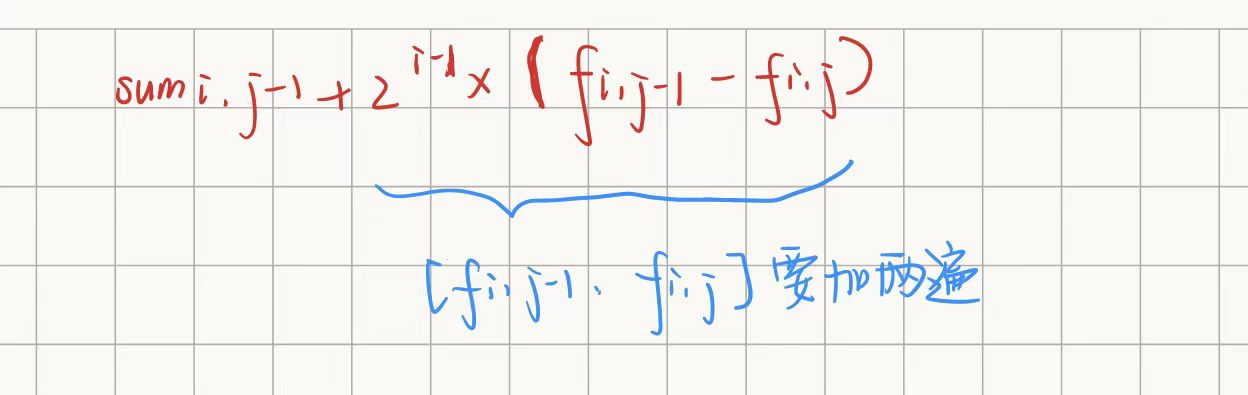 sum i,j-1 + 2^{i-1} × (f i,j-1 - f i,j)
[f i,j-1, f i,j] 要加两遍